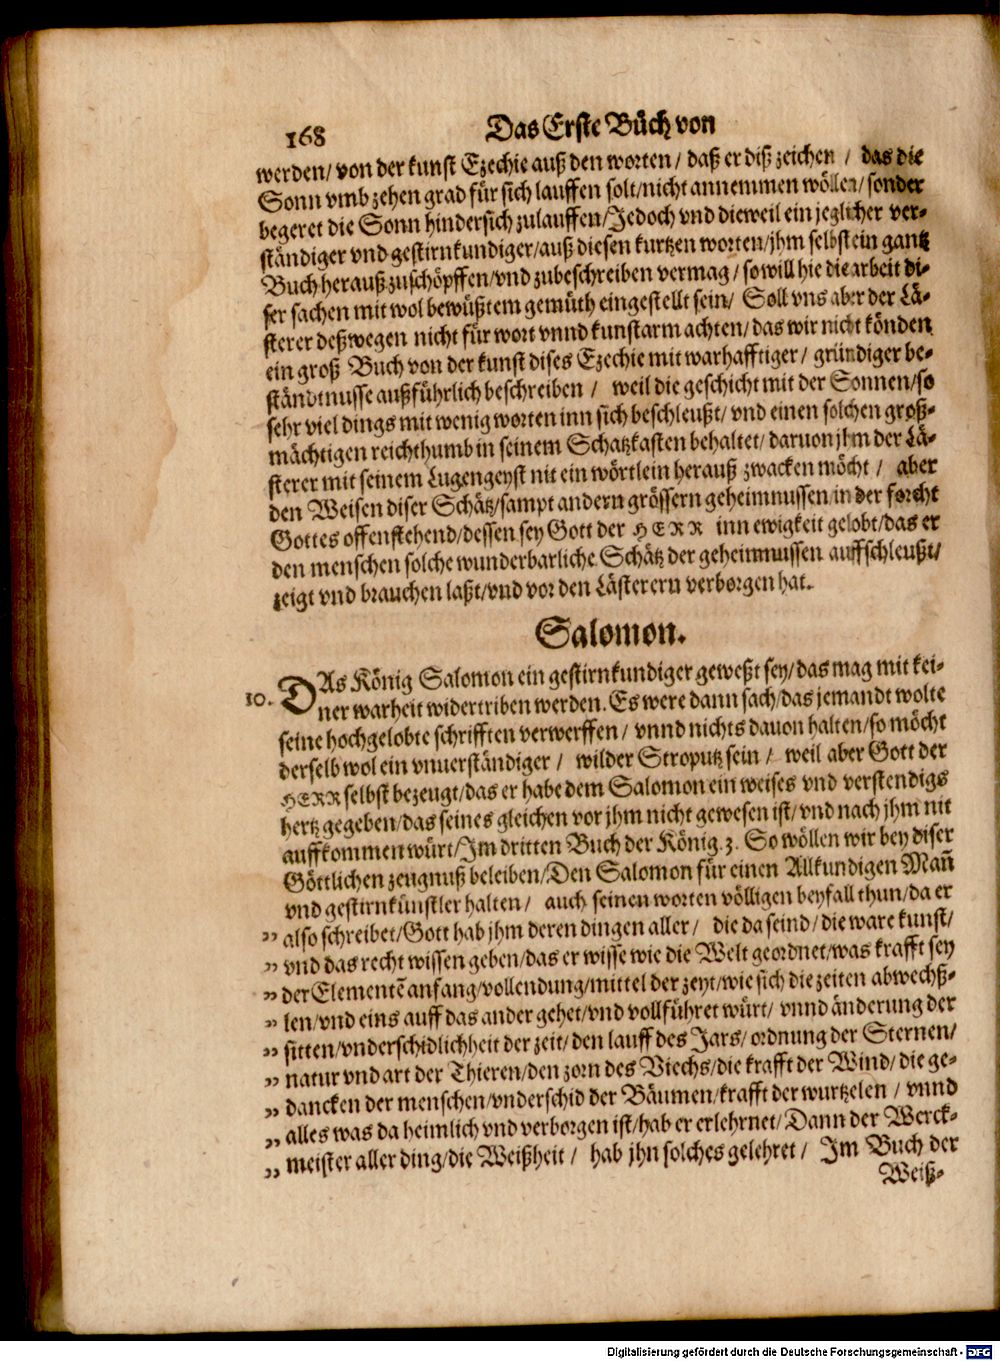 168
Das Erste Bůch von
werden/ von der kunst Ezechie auß den worten / daß er diß zeichen / das die
Sonn vmb zehen grad für sich lauffen solt/nicht annemmen wöllen/ sonder
begeret die Sonn hindersich zulauffen/Jedoch vnd dieweil ein jeglicher ver-
ständiger vnd gestirnkundiger/auß diesen kurtzen worten/jhm selbst ein gantz
Buch herauß zuschöpffen/vnd zubeschreiben vermag / so will hie die arbeit di-
ser sachen mit wol bewüßtem gemüth eingestellt sein/ Soll vns aber der Lä-
sterer deßwegen nicht für wort vnnd kunstarm achten/das wir nicht könden
ein groß Buch von der kunst dises Ezechie mit warhafftiger / gründiger be-
ständtnusse außführlich beschreiben / weil die geschicht mit der Sonnen/so
sehr viel dings mit wenig worten inn sich beschleußt/ vnd einen solchen groß-
mächtigen reichthumb in seinem Schatzkasten behaltet/ daruon jhm der Lä-
sterer mit seinem Lugengeyst nit ein wörtlein herauß zwacken möcht / aber
den Weisen diser Schätz/sampt andern grössern geheimnussen in der forcht
Gottes offenstehend/dessen sey Gott der HERR inn ewigkeit gelobt/das er
den menschen solche wunderbarliche Schätz der geheimnussen auffschleußt/
zeigt vnd brauchen laßt/vnd vor den Lästerern verborgen hat.
Salomon.
10. DAs König Salomon ein gestirnkundiger geweßt sey/das mag mit kei-
ner warheit widertriben werden. Es were dann sach/das jemandt wolte
seine hochgelobte schrifften verwerffen / vnnd nichts dauon halten/so möcht
derselb wol ein vnuerständiger / wilder Stroputz sein / weil aber Gott der
HERR selbst bezeugt/das er habe dem Salomon ein weises vnd verstendigs
hertz gegeben/das seines gleichen vor jhm nicht gewesen ist/vnd nach jhm nit
auffkommen würt/Im dritten Buch der König. 3. So wöllen wir bey diser
Göttlichen zeugnuß beleiben/Den Salomon für einen Allkundigen Mañ
vnd gestirnkünstler halten / auch seinen worten völligen beyfall thun/da er
„ also schreibet/Gott hab jhm deren dingen aller / die da seind/die ware kunst/
„ vnd das recht wissen geben/das er wisse wie die Welt geordnet/was krafft sey
„ der Elementē anfang/vollendung/mittel der zeyt/wie sich die zeiten abwechß-
„ len/vnd eins auff das ander gehet/vnd vollführet würt/ vnnd änderung der
„ sitten/vnderschidlichheit der zeit/den lauff des Jars/ ordnung der Sternen/
„ natur vnd art der Thieren/den zorn des Viechs/die krafft der Wind/die ge-
„ dancken der menschen/vnderschid der Bäumen/krafft der wurtzelen / vnnd
„ alles was da heimlich vnd verborgen ist/hab er erlehrnet/Dann der Werck-
„ meister aller ding/die Weißheit / hab jhn solches gelehret / Im Buch der
Weiß-
Digitalisierung gefördert durch die Deutsche Forschungsgemeinschaft - DFG